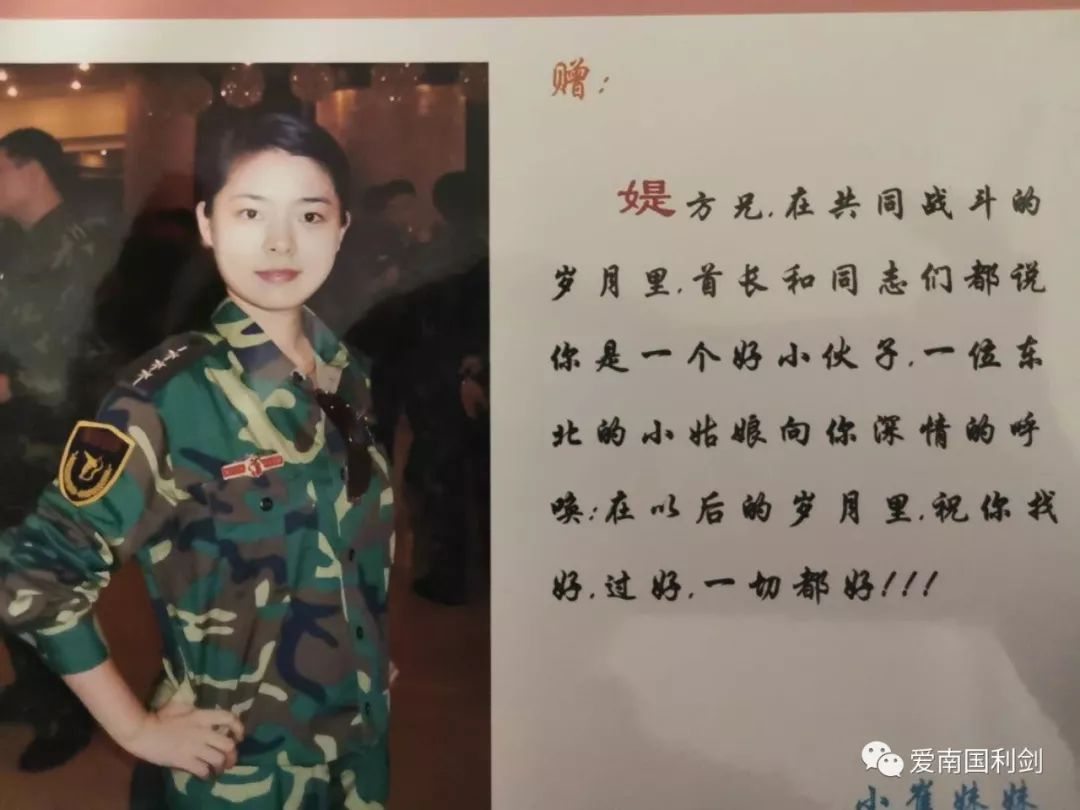 赠：
媞方兄,在共同战斗的
岁月里,首长和同志们都说
你是一个好小伙子,一位东
北的小姑娘向你深情的呼
唤:在以后的岁月里,祝你找
好,过好,一切都好!!!
爱南国利剑
小崔妹妹